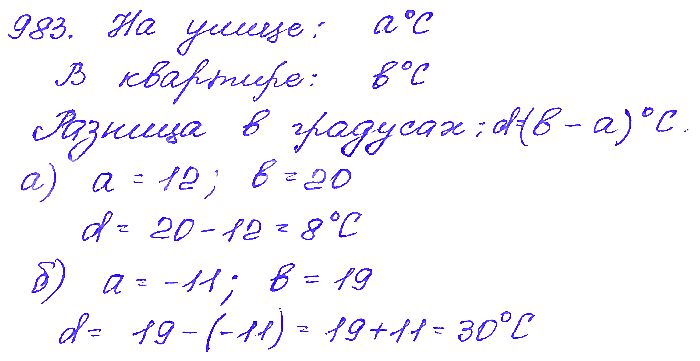 983. На улице: a°C
В квартире: в°C
Разница в градусах: d=(в - a)°C.
а) a = 12; в = 20
d = 20 - 12 = 8°C
б) a = -11; в = 19
d = 19 - (-11) = 19 + 11 = 30°C